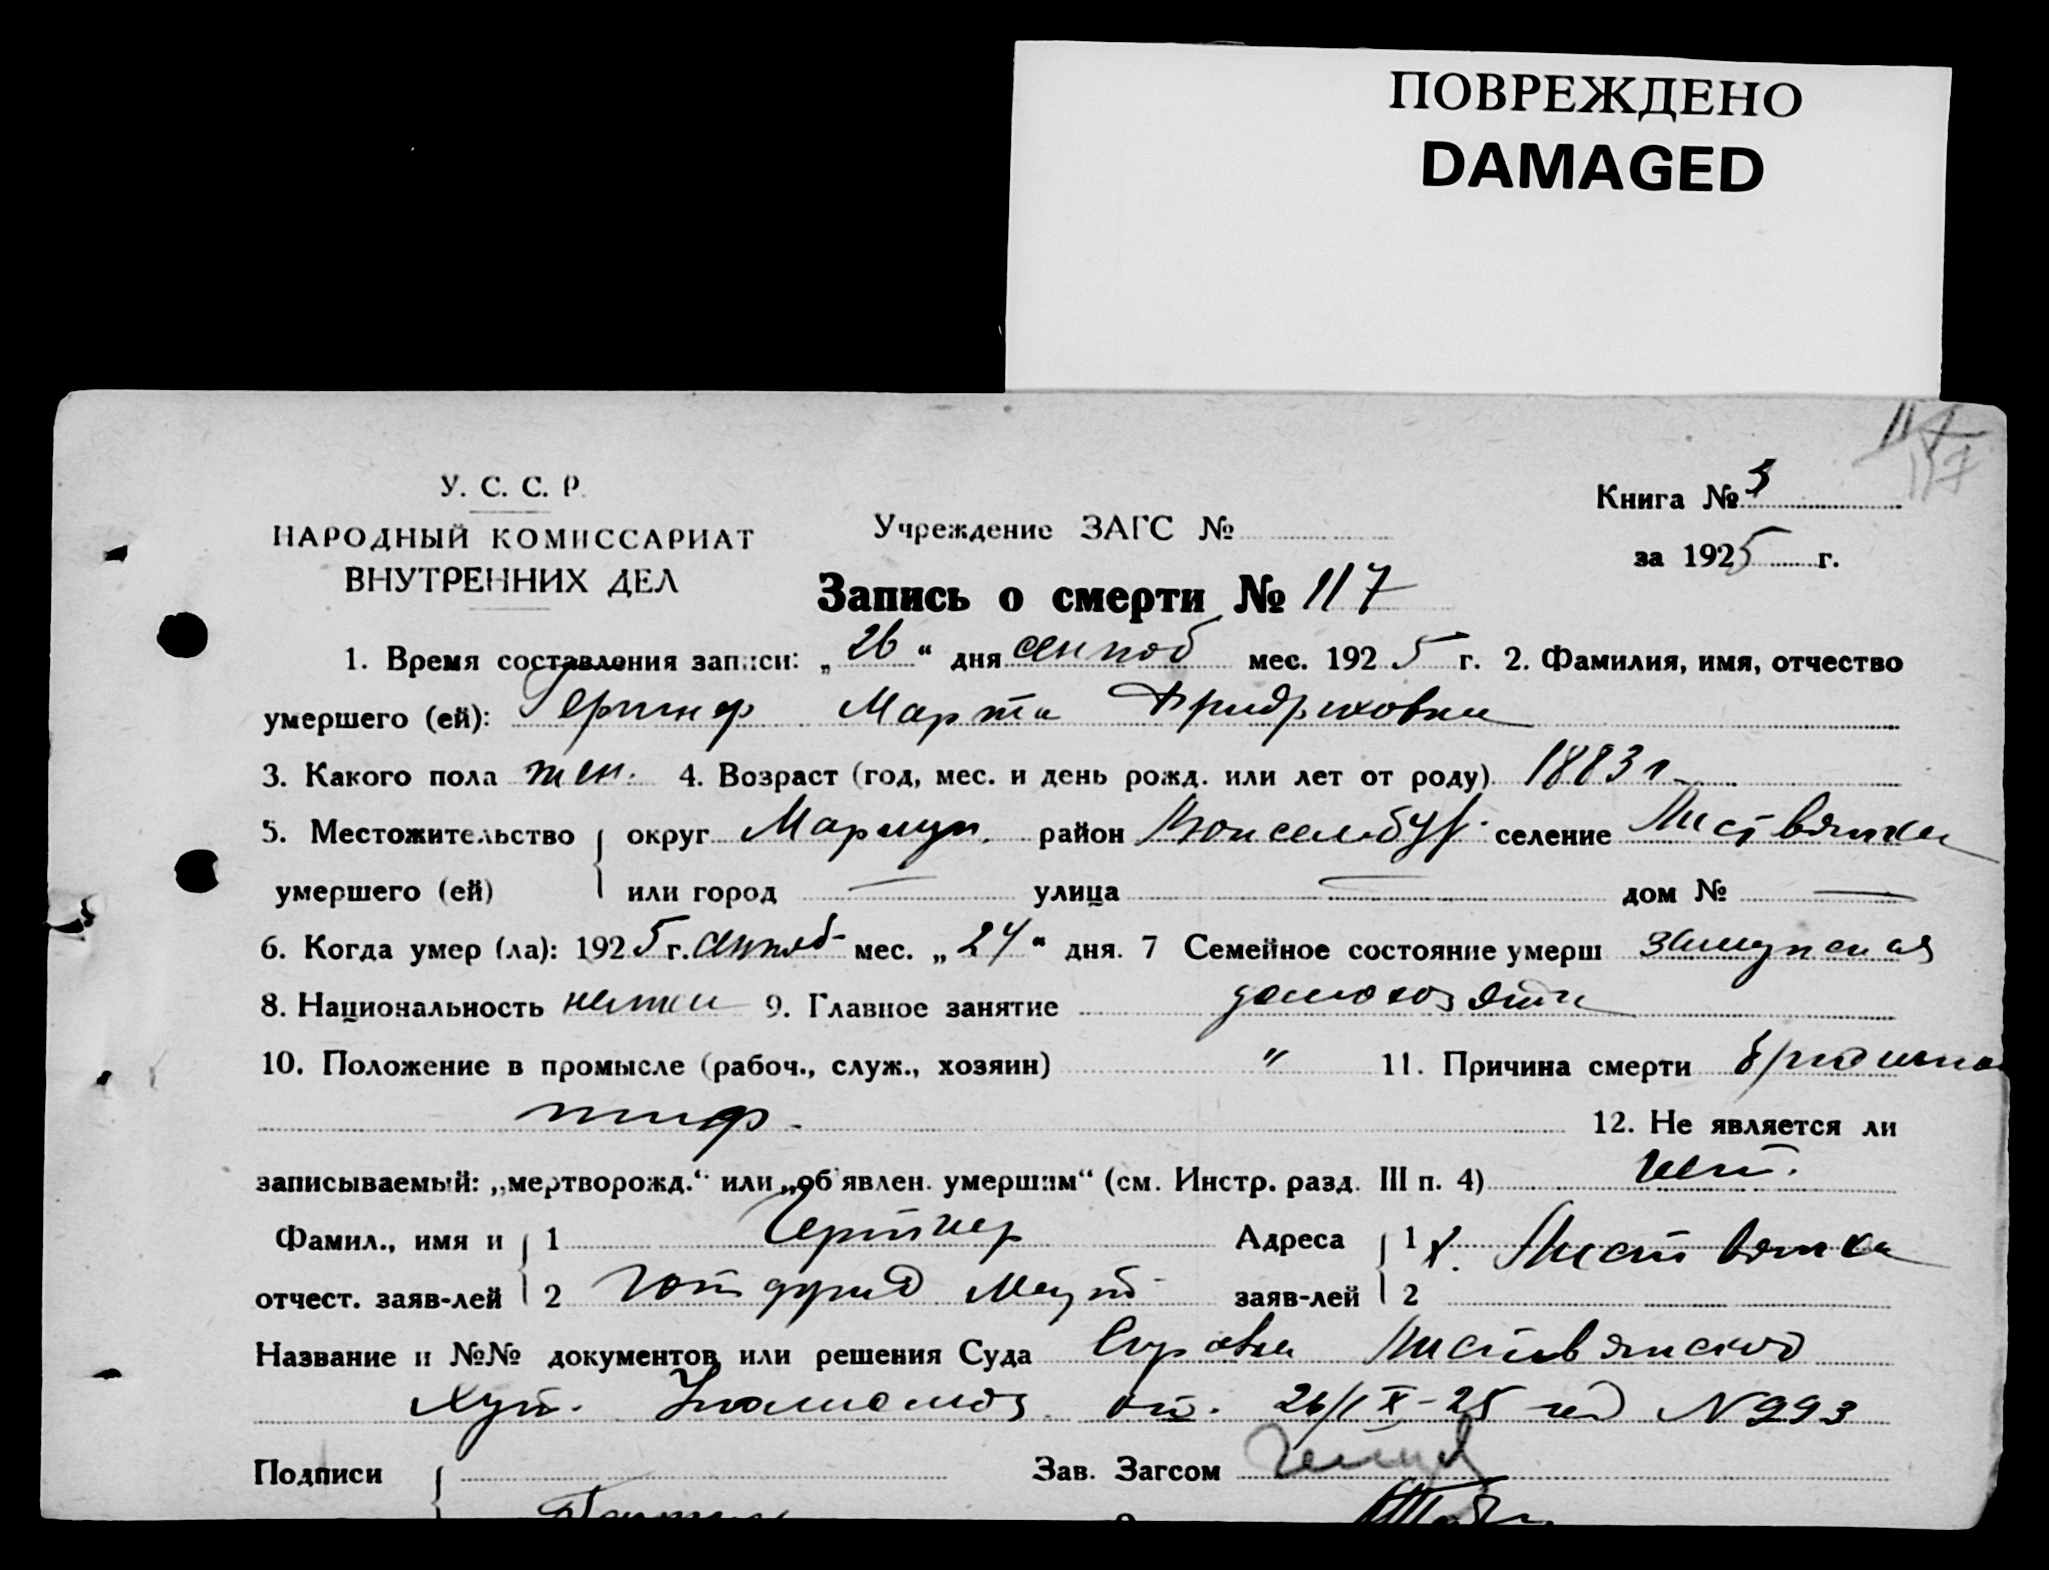 ПОВРЕЖДЕНО
DAMAGED
117
117
У. С. С. Р.
НАРОДНЫЙ КОМИССАРИАТ
ВНУТРЕННИХ ДЕЛ
Учреждение ЗАГС №
Книга № 3
за 1925 г.
Запись о смерти № 117
1. Время составления записи: „26“ дня сентяб мес. 1925 г. 2. Фамилия, имя, отчество
умершего (ей): Гертнер Марта Фридриховна
3. Какого пола жен. 4. Возраст (год, мес. и день рожд. или лет от роду) 1883 г
5. Местожительство округ Мариуп. район селение Листвянка
умершего (ей) или город — улица — дом № —
6. Когда умер (ла): 1925 г. сентяб мес. „24“ дня. 7 Семейное состояние умерш замужняя
8. Национальность немка 9. Главное занятие домохозяйка
10. Положение в промысле (рабоч., служ., хозяин) " 11. Причина смерти брюшной
тиф. 12. Не является ли
записываемый: „мертворожд.“ или „об'явлен. умершим“ (см. Инстр. разд. III п. 4) нет.
Фамил., имя и 1 Гертнер Адреса 1 х. Листвянка
отчест. заяв-лей 2 Готфрид заяв-лей 2
Название и №№ документов или решения Суда Справка Листвянского
Хут. от. 26/IX-25 N 993
Подписи Зав. Загсом